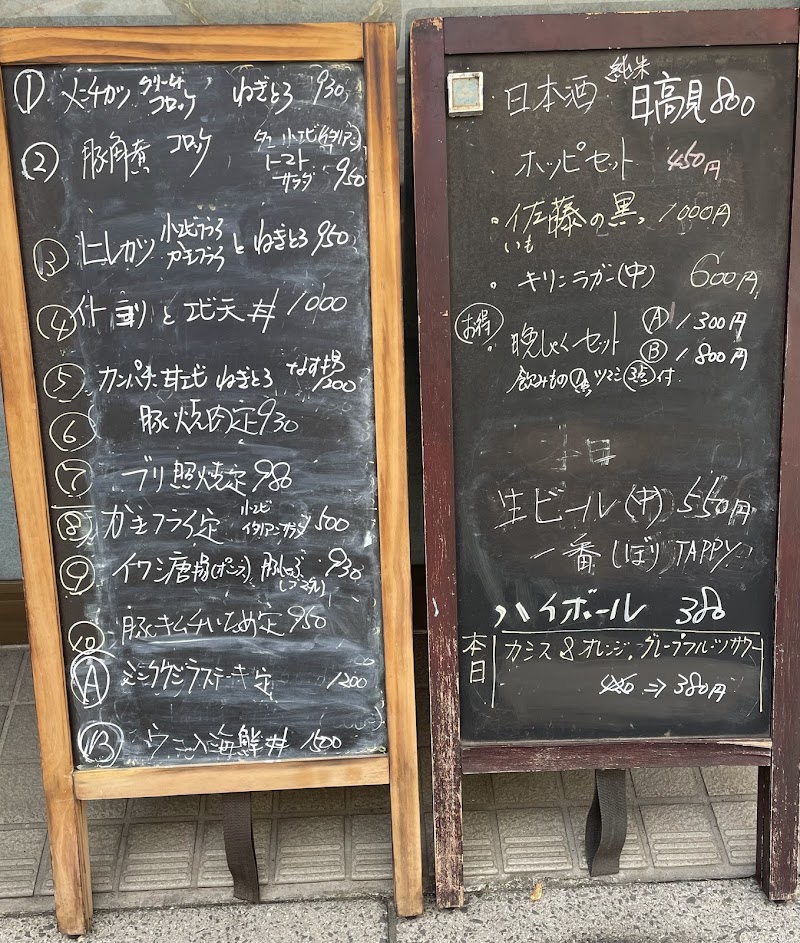 ① メンチカツ クリームコロッケ ねぎとろ 930
② 豚角煮 コロッケ タコ小エビイタリアン トマトサラダ 950
③ ヒレカツ 小エビフライ カキフライ と ねぎとろ 950
④ と エビ天丼 1000
⑤ カンパチ 甘エビ ねぎとろ なす 1200
⑥ 豚焼肉定 930
⑦ ブリ照焼定 980
⑧ カキフライ定 小エビイタリアンサラダ 1500
⑨ イワシ唐揚(ポンズ) 豚しゃぶ 930
⑩ 豚キムチいため定 950
Ⓐ ミンククジラステーキ定 1200
Ⓑ ウニ入海鮮丼 1500
日本酒 純米 日高見 800
ホッピセット 450円
・佐藤の黒 1000円
いも
・キリンラガー(中) 600円
お得
・晩しゃくセット Ⓐ 1300円
Ⓑ 1800円
飲みもの ツマミ 3点 付
生ビール(中) 550円
一番しぼり TAPPY
ハイボール 380
本日 カシス&オレンジ、グレープフルーツサワー
⇒380円